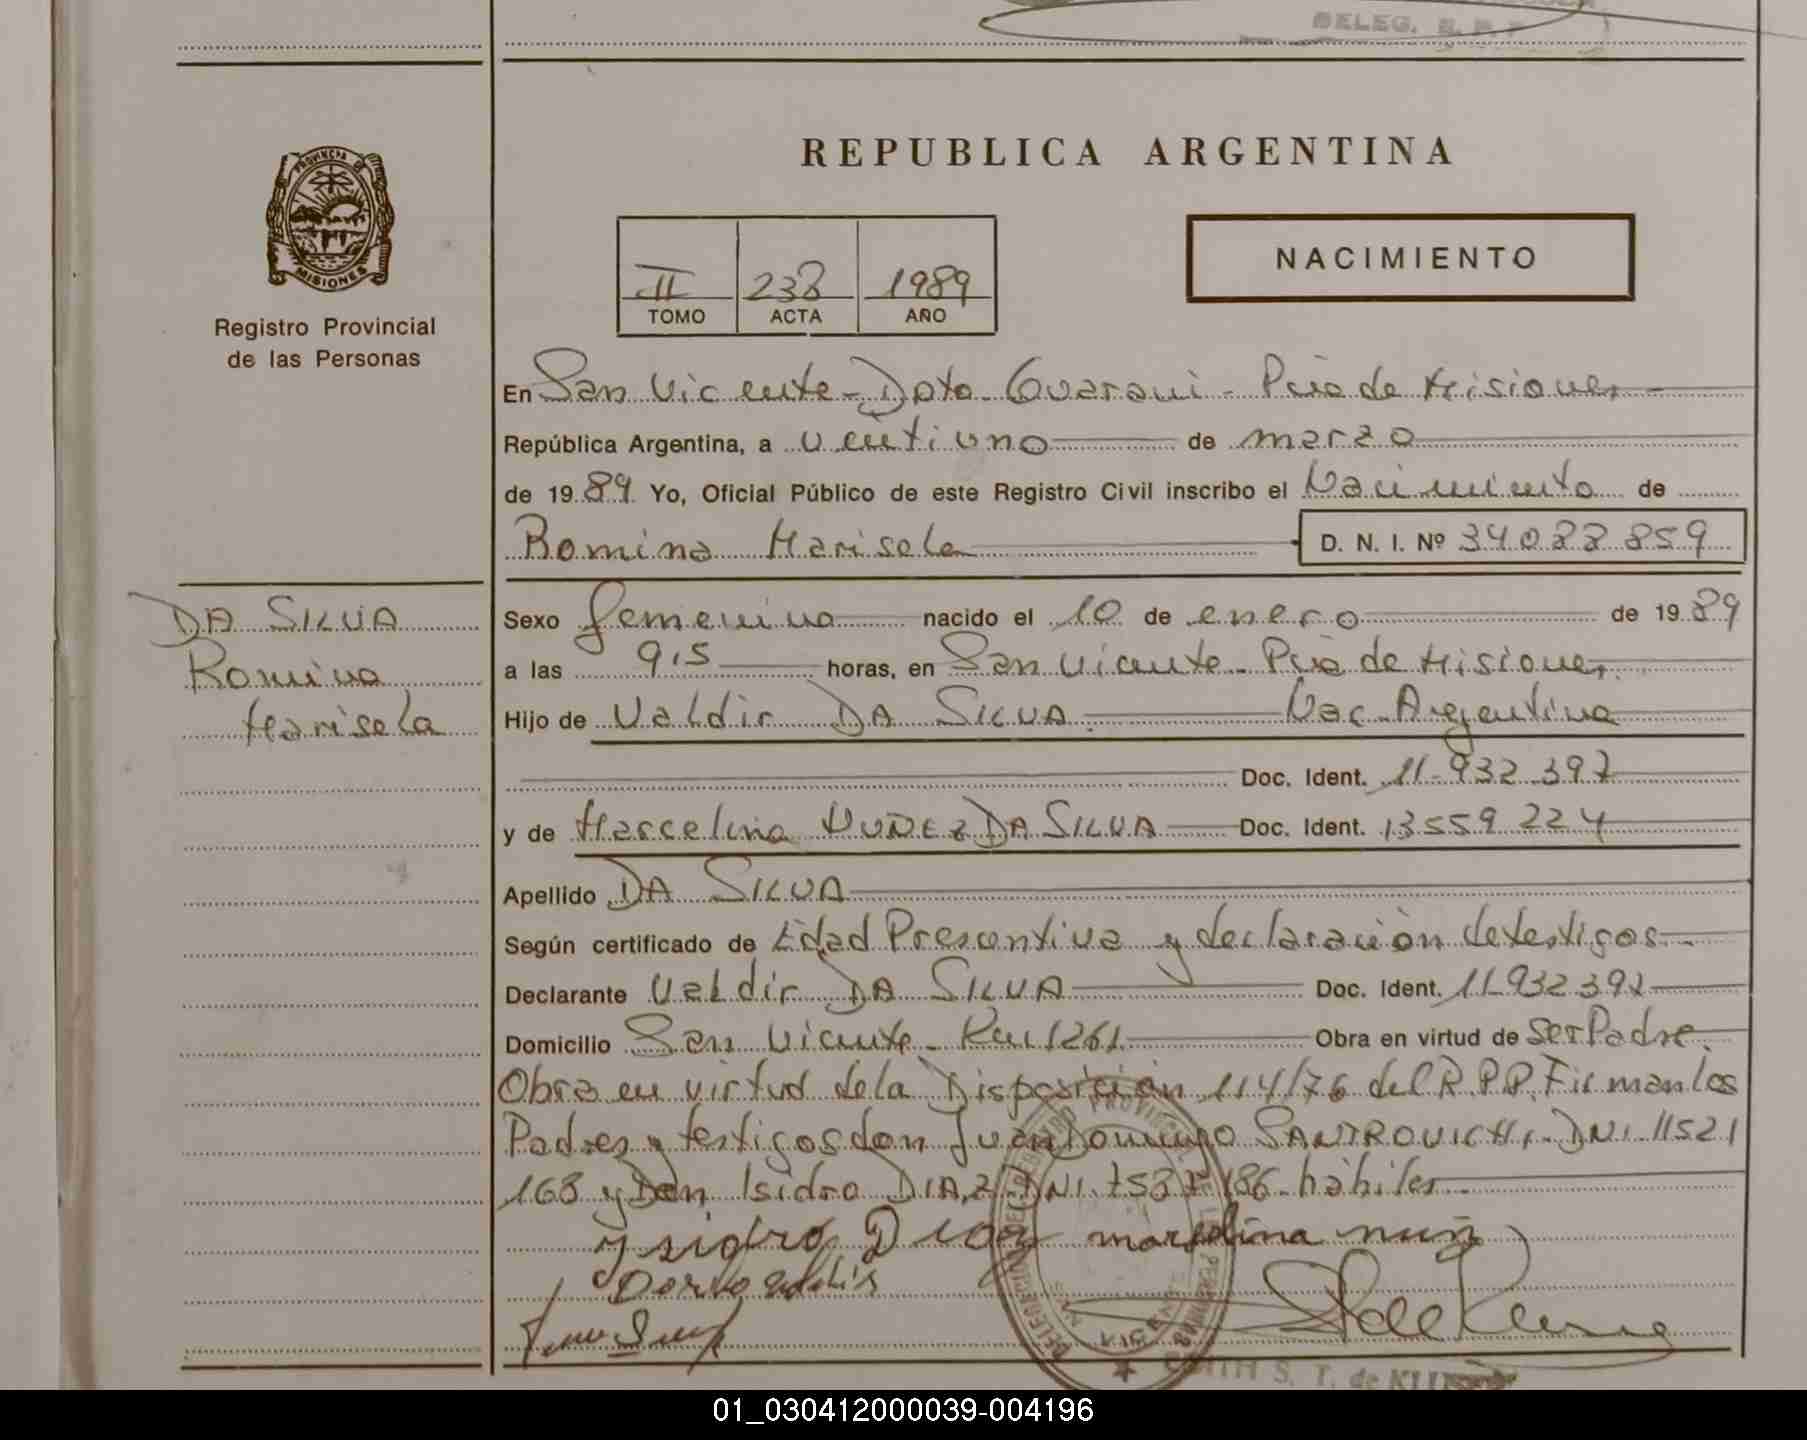 DELEG. R. P. P.
PROVINCIA DE
MISIONES
Registro Provincial
de las Personas
REPUBLICA ARGENTINA
NACIMIENTO
II 238 1989
TOMO ACTA AÑO
En San Vicente - Dpto. Guaraní - Pcia de Misiones
República Argentina, a veintiuno de marzo
de 1989 Yo, Oficial Público de este Registro Civil inscribo el Nacimiento de
Romina Marisela D. N. I. Nº 34.088.859
DA SILVA
Romina
Marisela
Sexo femenino nacido el 10 de enero de 1989
a las 9,15 horas, en San Vicente - Pcia de Misiones
Hijo de Valdir DA SILVA Nac. Argentina
Doc. Ident. 11.932.397
y de Marcelina NUÑEZ DA SILVA Doc. Ident. 13559.224
Apellido DA SILVA
Según certificado de Edad Presentiva y declaración de testigos
Declarante Valdir DA SILVA Doc. Ident. 11.932.397
Domicilio San Vicente - Km 1261 Obra en virtud de Ser Padre.
Obra en virtud de la Disposición 114/76 del R.P.P. Firman los
Padres y testigos don Juan Domingo SANTROVICH, DNI. 11521
168 y Don Isidro DIAZ DNI. 7537186 - hábiles
ysidro Diaz marselina nuñ
01_030412000039-004196